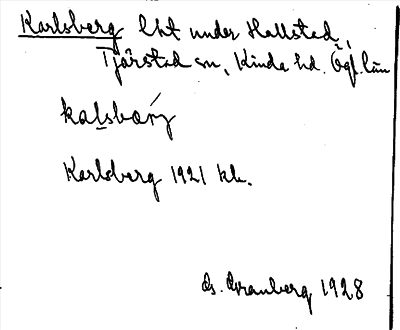 Karlsberg lht under Hallstad,
Tjärstad sn, Kinda hd. Ögl. län
kalsbærj
Karlsberg 1921 kk.
G. Granberg 1928